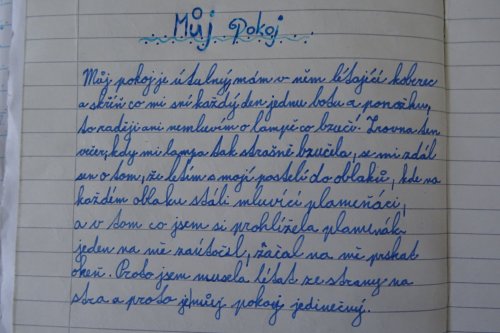 Můj Pokoj
Můj pokoj je útulný, mám v něm létající koberec
a skříň co mi sní každý den jednu botu a ponožku,
to raději ani nemluvím o lampě co bzučí. Zrovna ten
večer, kdy mi lampa tak strašně bzučela, se mi zdál
sen o tom, že letím a mojí postelí do oblaků, kde na
každém oblaku stáli mluvící plameňáci,
a v tom co jsem si prohlížela plameňáka
jeden na mě zaútočil, začal na mě prskat
oheň. Proto jsem musela létat ze strany na
stra a proto je můj pokoj jedinečný.